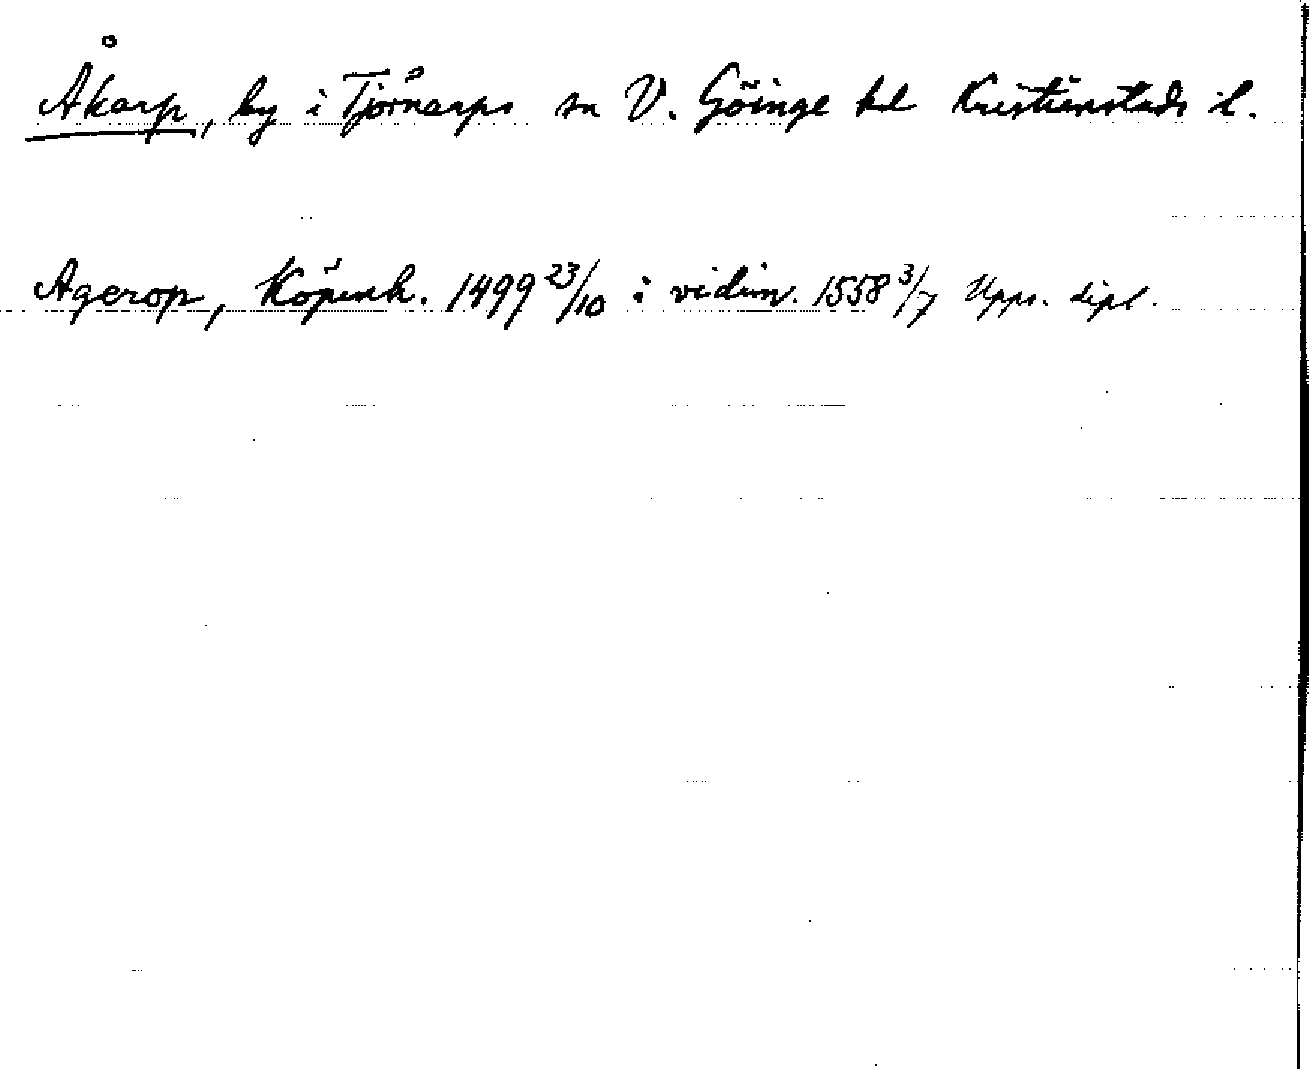 Åkarp, by i Tjörnarps sn V. Göinge hd Kristianstads l.
Agerop, Köpenh. 1499 23/10 i vidim. 1558 3/7 Upps. dipl.